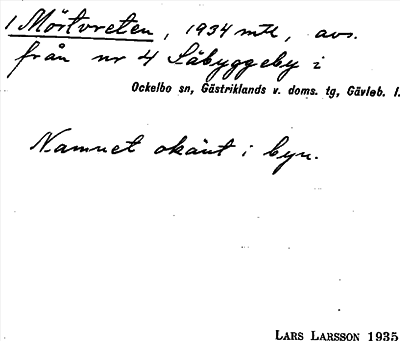 1 Mörtvreten, 1934 mtl, avs.
från nr 4 Säbyggeby i
Ockelbo sn, Gästriklands v. doms. tg, Gävleb. l.
Namnet okänt i byn.
LARS LARSSON 1935